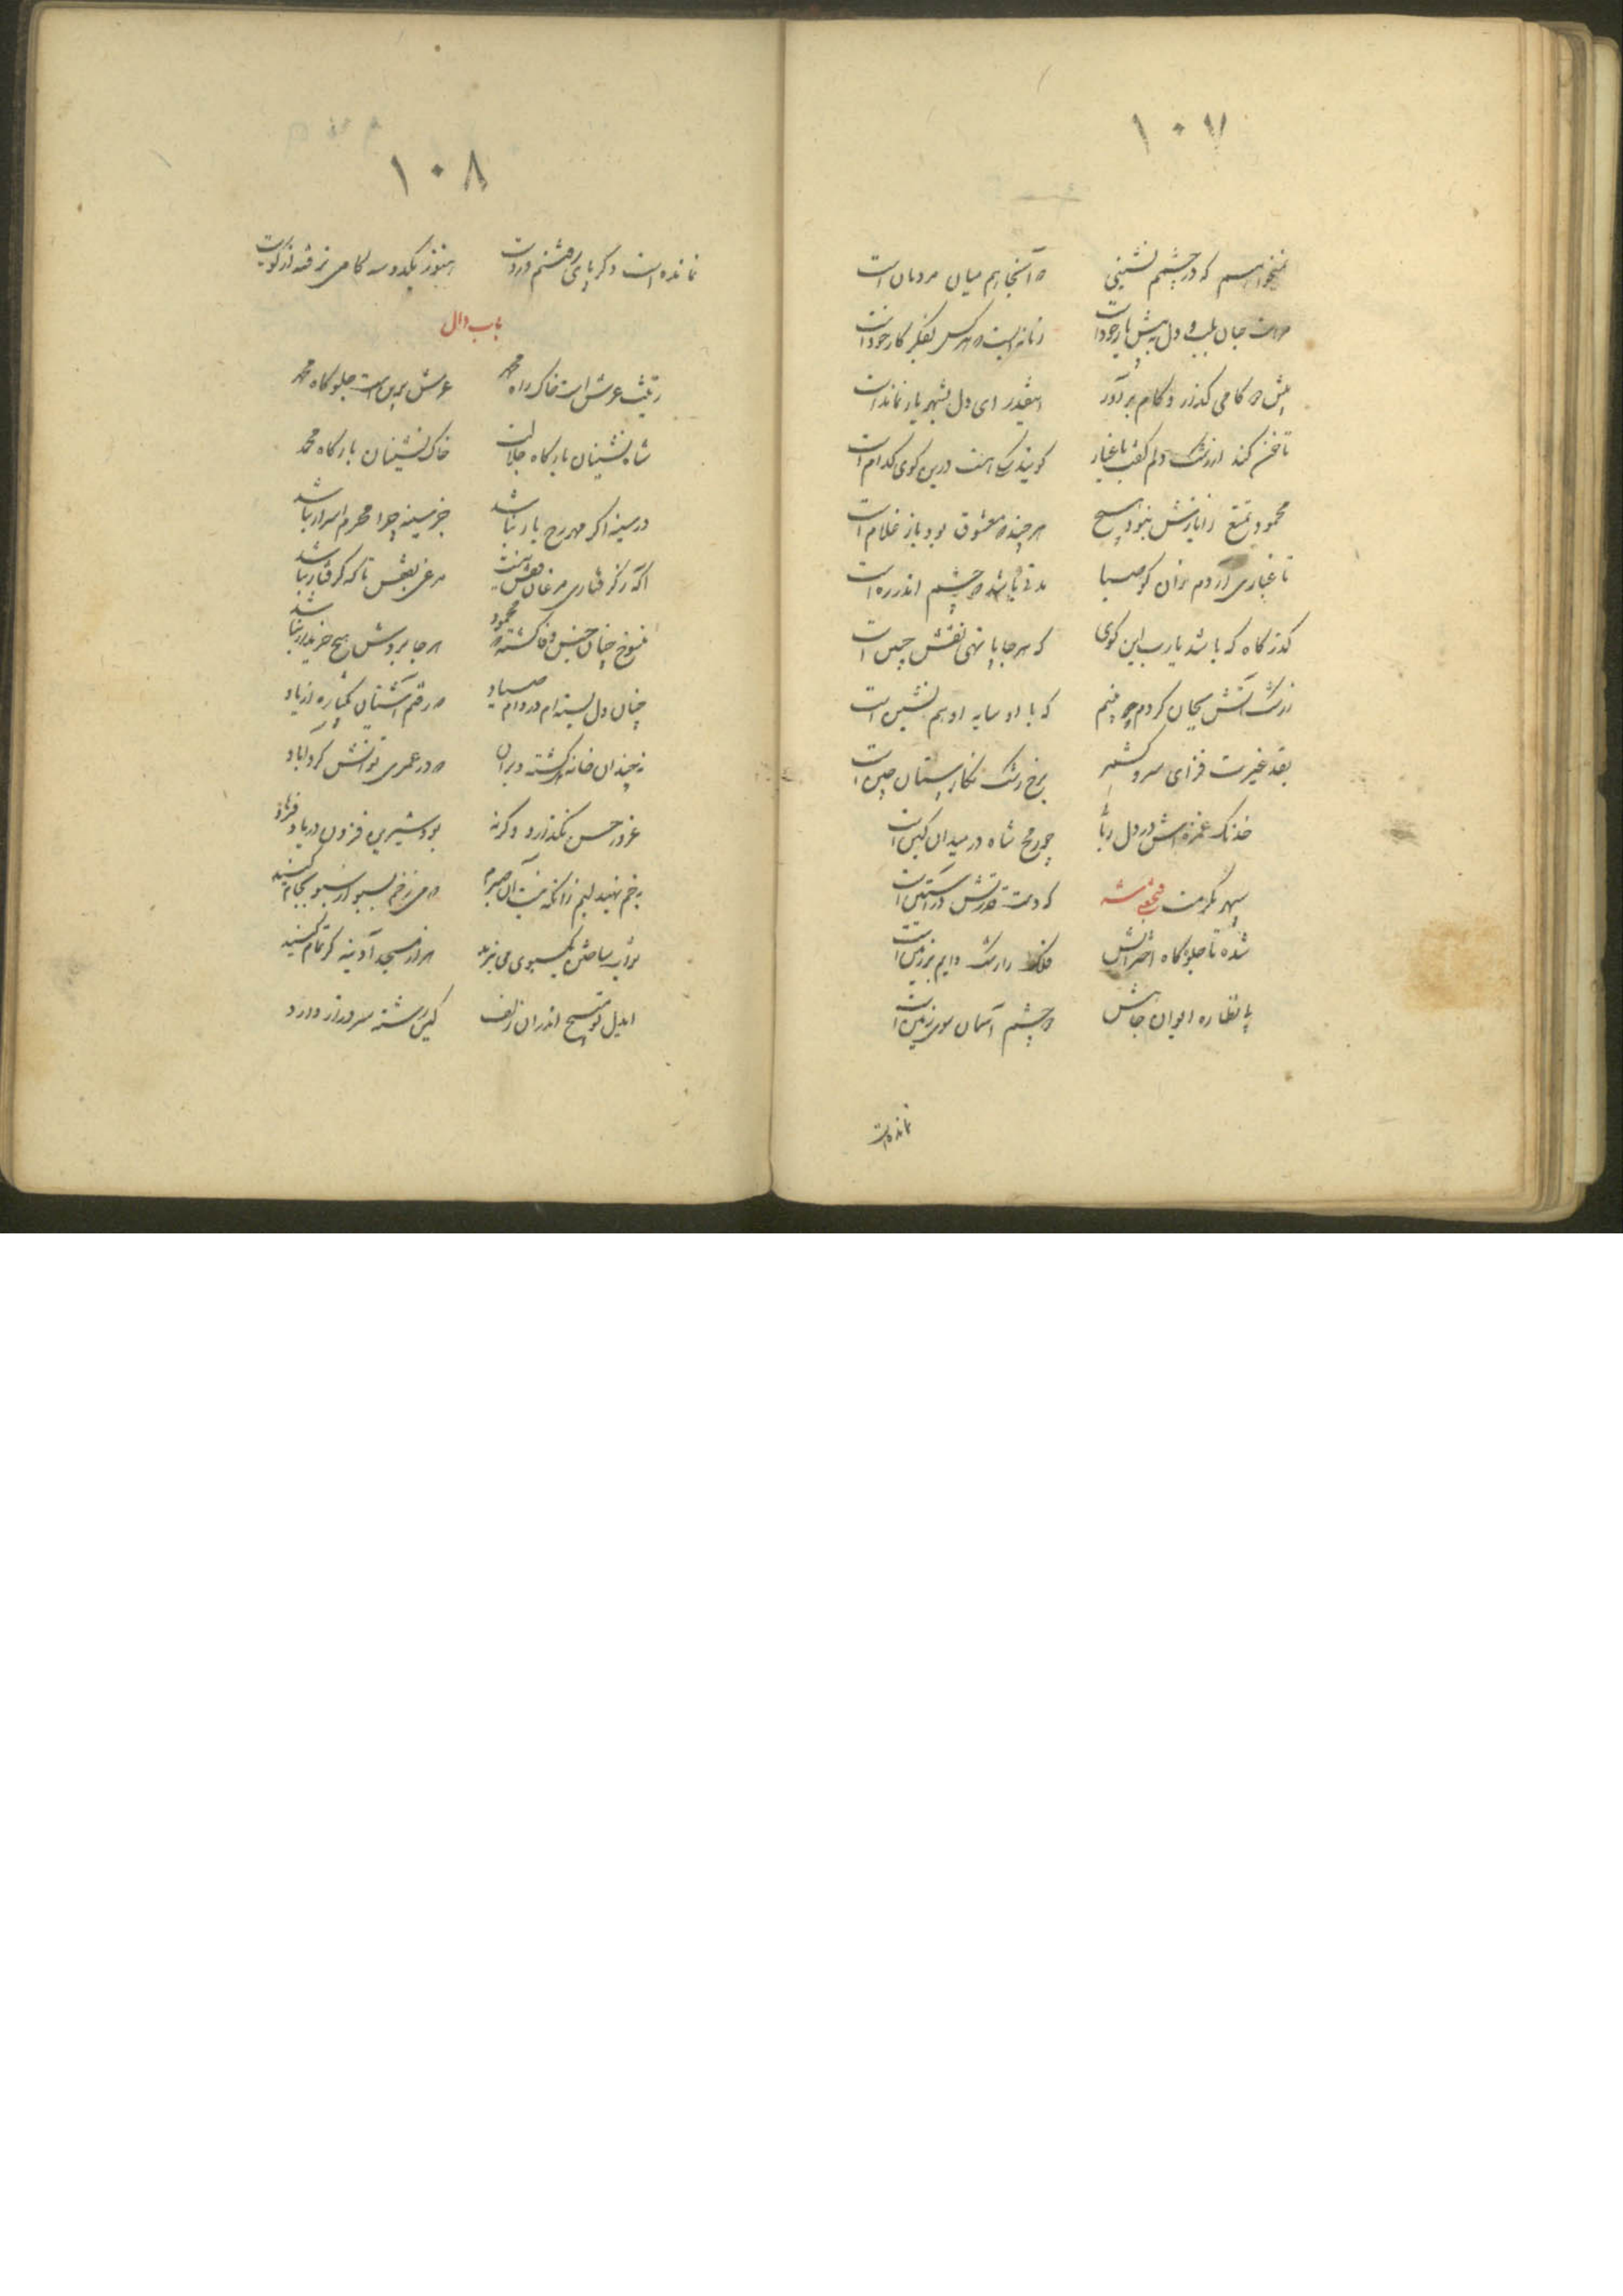 ۱۰۷
نمیخواهم که در چشمم نشینی که آنجا هم میان مردمان است
مراست جان بلب و دل به پیش یار خود است زمانه ایست که هر کس بفکر کار خود است
پیش که کامی گذار و کام برآور اینقدر ای دل بشهر یار نماند است
تا خون کند از رشک دلم گفت باغیار گویند سگ ماست درین کوی کدام است
محمود تمتع ز ایازش نبود هیچ هر چند که معشوق بود باز غلام است
تا غباری آردم زان کو صبا مدتی باشد که چشمم اندر ره است
گذرگاه که باشد یارب این کوی که هر جا پا نهی نقش جبین است
ز رشک آتش بجان کردم چو بینم که با او سایه او هم نشین است
بقد غیرت فزای سرو کشمیر برخ رشک نگارستان چین است
خدنگ غمزه اش در دل ربائی چو رمح شاه در میدان کین است
سپهر مکرمت فتحعلی شه که دست قدرتش در آستین است
شده تا جلوه گاه اخترانش فلک را رشک دایم بر زمین است
پا نظاره ایوان جاهش دو چشم آسمان سوی زمین است
نمانده است
۱۰۸
نمانده است دگر پای رفتنم در دست هنوز یکدو سه گامی نرفته از کویت
باب دال
زینت عرش است خاک راه محمد عرش برین است جلوه گاه محمد
شاه نشینان بارگاه جلالت خاک نشینان بارگاه محمد
در سینه اگر مهر رخ یار نباشد جز سینه چرا محرم اسرار نباشد
آگه ز گرفتاری مرغان قفس نیست مرغی بقفس تا که گرفتار نباشد
منسوخ چنان جنس وفا گشته که محمود هر جا بردش هیچ خریدار نباشد
چنان دل بسته ام در دام صیاد که رفتم آشیان یکباره از یاد
نه چندان خانه ام گشته ویران که در عمری توانش کرد آباد
غرور حسن نگذارد وگرنه بود شیرین فزون در یاد فرهاد
به خم نهید لبم زانکه نیست آن صبرم که می ز خم بسبو از سبو بجام کنید
ثواب ساختن یک سبوی می نبرید هزار مسجد آدینه گر تمام کنید
ایدل تو مپیچ اندران زلف کین رشته سر دراز دارد